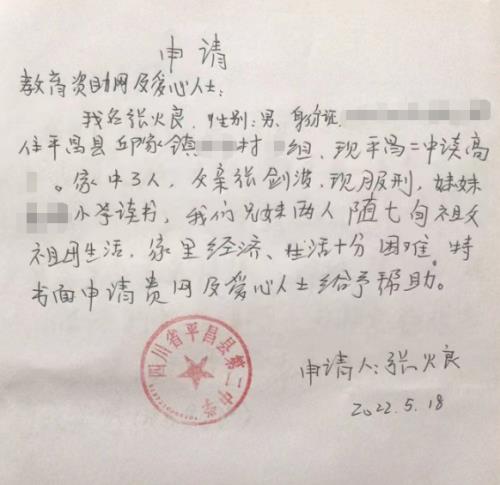 申请
教育资助网及爱心人士:
我名张火良,性别:男,身份证
住平昌县邱家镇 村 组,现平昌二中读高
。家中3人,父亲张剑波,现服刑,妹妹
小学读书,我们兄妹两人随七旬祖父
祖母生活,家里经济、生活十分困难。特
书面申请贵网及爱心人士给予帮助。
四川省平昌县第二中学
申请人:张火良
2022.5.18